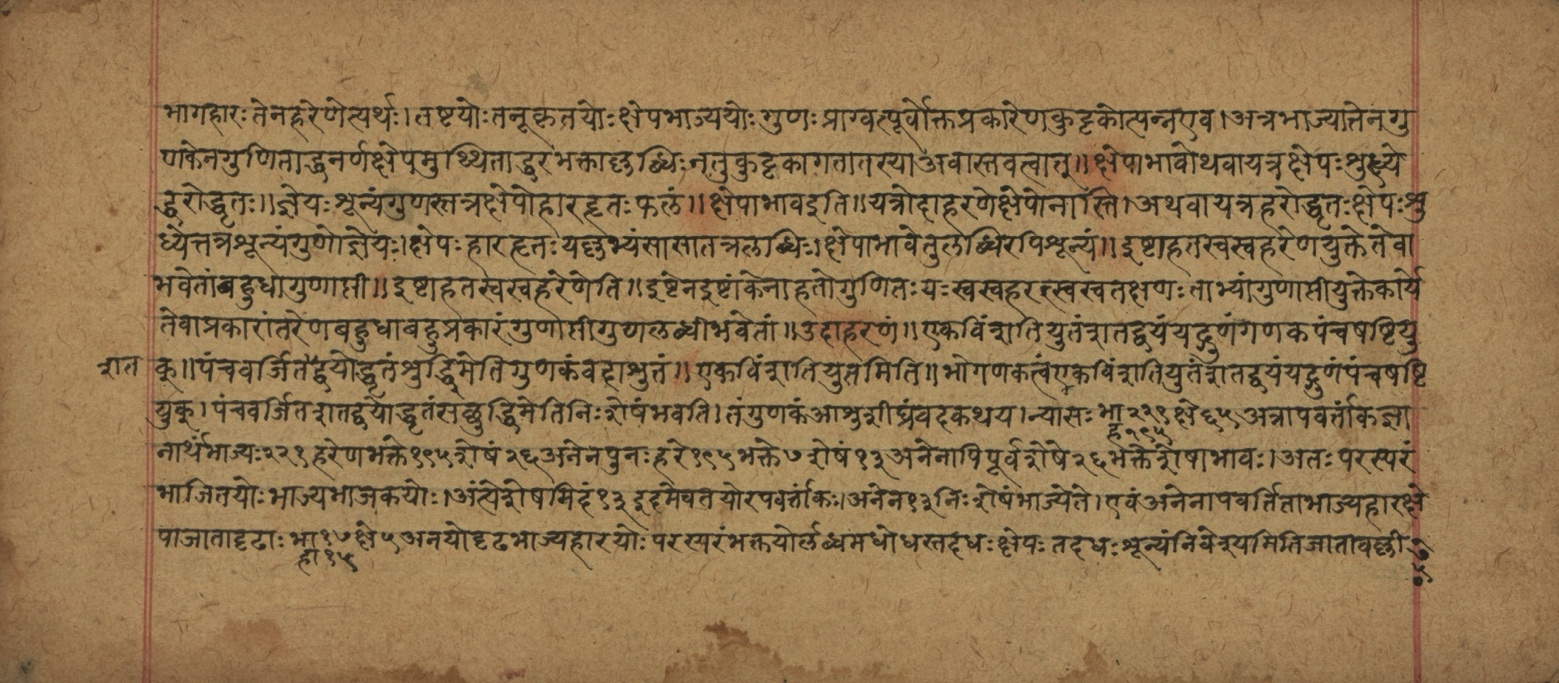 भागहारः तेनहरेणेत्यर्थः। तष्टयोः तनूकृतयोः क्षेपभाज्ययोः गुणः प्राग्वत्पूर्वोक्तप्रकारेणकुट्टकोत्पन्नएव। अत्रभाज्यात्तेनगु
णकेनगुणिताद्धनर्णक्षेपमुथ्थिताद्धरभक्ताल्लब्धिः नतुकुट्टकागतातस्याअवास्तवत्वात्॥ क्षेपाभावोथवायत्रक्षेपः शुध्ये
द्धरोद्धृतः॥ ज्ञेयः शून्यंगुणस्तत्रक्षेपोहारहृतः फलं॥ क्षेपाभावइति॥ यत्रोदाहरणेक्षेपोनास्ति। अथवायत्रहरोद्धृतः क्षेपः शु
ध्येत्तत्रशून्यंगुणोज्ञेयः। क्षेपः हारहृतः यल्लभ्यंसासातत्रलब्धिः। क्षेपाभावेतुलब्धिरपिशून्यं॥ इष्टाहतस्वस्वहरेणयुक्तेतेवा
भवेतांबहुधागुणाप्ती॥ इष्टाहतस्वस्वहरेणेति॥ इष्टेनइष्टांकेनाहतोगुणितः यः स्वस्वहरस्स्वस्वतक्षणः ताभ्यांगुणाप्तीयुक्तेकार्ये
तेवाप्रकारांतरेणबहुधाबहुप्रकारंगुणाप्तीगुणलब्धीभवेतां॥ उदाहरणं॥ एकविंशतियुतंशतद्वयंयद्गुणंगणकपंचषष्टियु
शत
क्॥ पंचवर्जितद्वयोद्धृतंशुद्धिमेतिगुणकंवदाशुतं॥ एकविंशतियुतमिति॥ भोगणकत्वंएकविंशतियुतंशतद्वयंयद्गुणंपंचषष्टि
युक्। पंचवर्जितशतद्वयोद्धृतंसच्छुद्धिमेतिनिःशेषंभवति। तंगुणकंआशुशीघ्रंवदकथय। न्यासः भा२२१क्षे६५अत्रापवर्तांकज्ञा
हा१९५
नार्थंभाज्यः २२१हरेणभक्ते१९५शेषं२६अनेनपुनः हरे१९५भक्ते७शेषं१३अनेनापिपूर्वशेषे२६भक्तेशेषाभावः। अतः परस्परं
भाजितयोः भाज्यभाजकयोः। अंत्येशेषमिदं१३इदमेवतयोरपवर्तांकः। अनेन१३निःशेषंभाज्येते। एवंअनेनापवर्तिताभाज्यहारक्षे
पाजातादृढाः भा१७क्षे५अनयोदृढभाज्यहारयोः परस्परंभक्तयोर्लब्धमधोधस्तदधः क्षेपः तदधः शून्यंनिवेश्यमितिजातावल्ली
हा१५